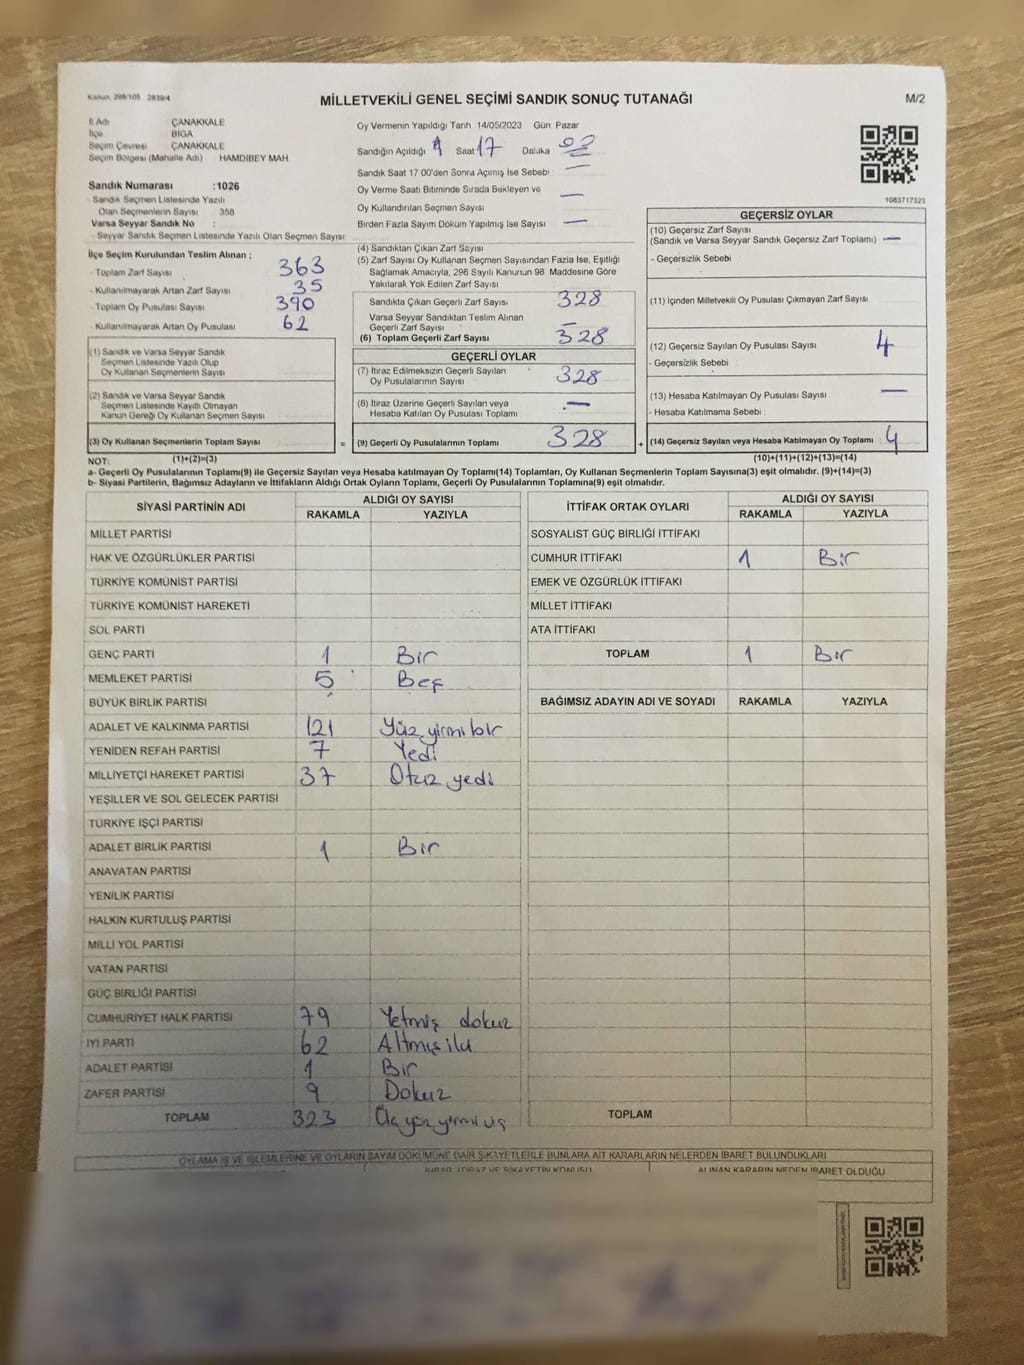 Kanun: 298/105 2839/4
MİLLETVEKİLİ GENEL SEÇİMİ SANDIK SONUÇ TUTANAĞI
M/2
İl Adı ÇANAKKALE
İlçe BİGA
Seçim Çevresi ÇANAKKALE
Seçim Bölgesi (Mahalle Adı) HAMDİBEY MAH.
Sandık Numarası :1026
- Sandık Seçmen Listesinde Yazılı
Olan Seçmenlerin Sayısı 358
Varsa Seyyar Sandık No :
- Seyyar Sandık Seçmen Listesinde Yazılı Olan Seçmen Sayısı
İlçe Seçim Kurulundan Teslim Alınan ;
- Toplam Zarf Sayısı 363
- Kullanılmayarak Artan Zarf Sayısı 35
- Toplam Oy Pusulası Sayısı 390
- Kullanılmayarak Artan Oy Pusulası 62
(1) Sandık ve Varsa Seyyar Sandık
Seçmen Listesinde Yazılı Olup
Oy Kullanan Seçmenlerin Sayısı
(2) Sandık ve Varsa Seyyar Sandık
Seçmen Listesinde Kayıtlı Olmayan
Kanun Gereği Oy Kullanan Seçmen Sayısı
(3) Oy Kullanan Seçmenlerin Toplam Sayısı
Oy Vermenin Yapıldığı Tarih 14/05/2023 Gün Pazar
Sandığın Açıldığı Saat 17 Dakika
Sandık Saat 17 00'den Sonra Açımış İse Sebebi
Oy Verme Saati Bitiminde Sırada Bekleyen ve —
Oy Kullandırılan Seçmen Sayısı
Birden Fazla Sayım Döküm Yapılmış İse Sayısı —
(4) Sandıktan Çıkan Zarf Sayısı
(5) Zarf Sayısı Oy Kullanan Seçmen Sayısından Fazla İse, Eşitliği
Sağlamak Amacıyla, 298 Sayılı Kanunun 98. Maddesine Göre
Yakılarak Yok Edilen Zarf Sayısı
Sandıkta Çıkan Geçerli Zarf Sayısı 328
Varsa Seyyar Sandıktan Teslim Alınan
Geçerli Zarf Sayısı —
(6) Toplam Geçerli Zarf Sayısı 328
GEÇERLİ OYLAR
(7) İtiraz Edilmeksizin Geçerli Sayılan
Oy Pusulalarının Sayısı 328
(8) İtiraz Üzerine Geçerli Sayılan veya
Hesaba Katılan Oy Pusulası Toplamı —
= (9) Geçerli Oy Pusulalarının Toplamı 328
1083717323
GEÇERSİZ OYLAR
(10) Geçersiz Zarf Sayısı
(Sandık ve Varsa Seyyar Sandık Geçersiz Zarf Toplamı) —
- Geçersizlik Sebebi
(11) İçinden Milletvekili Oy Pusulası Çıkmayan Zarf Sayısı
(12) Geçersiz Sayılan Oy Pusulası Sayısı 4
- Geçersizlik Sebebi
(13) Hesaba Katılmayan Oy Pusulası Sayısı —
- Hesaba Katılmama Sebebi
+ (14) Geçersiz Sayılan veya Hesaba Katılmayan Oy Toplamı 4
NOT: (1)+(2)=(3) (10)+(11)+(12)+(13)=(14)
a- Geçerli Oy Pusulalarının Toplamı(9) ile Geçersiz Sayılan veya Hesaba katılmayan Oy Toplamı(14) Toplamları, Oy Kullanan Seçmenlerin Toplam Sayısına(3) eşit olmalıdır. (9)+(14)=(3)
b- Siyasi Partilerin, Bağımsız Adayların ve İttifakların Aldığı Ortak Oyların Toplamı, Geçerli Oy Pusulalarının Toplamına(9) eşit olmalıdır.
SİYASİ PARTİNİN ADI ALDIĞI OY SAYISI
RAKAMLA YAZIYLA
MİLLET PARTİSİ
HAK VE ÖZGÜRLÜKLER PARTİSİ
TÜRKİYE KOMÜNİST PARTİSİ
TÜRKİYE KOMÜNİST HAREKETİ
SOL PARTİ
GENÇ PARTİ 1 Bir
MEMLEKET PARTİSİ 5 Beş
BÜYÜK BİRLİK PARTİSİ
ADALET VE KALKINMA PARTİSİ 121 Yüz yirmi bir
YENİDEN REFAH PARTİSİ 7 Yedi
MİLLİYETÇİ HAREKET PARTİSİ 37 Otuz yedi
YEŞİLLER VE SOL GELECEK PARTİSİ
TÜRKİYE İŞÇİ PARTİSİ
ADALET BİRLİK PARTİSİ 1 Bir
ANAVATAN PARTİSİ
YENİLİK PARTİSİ
HALKIN KURTULUŞ PARTİSİ
MİLLİ YOL PARTİSİ
VATAN PARTİSİ
GÜÇ BİRLİĞİ PARTİSİ
CUMHURİYET HALK PARTİSİ 79 Yetmiş dokuz
İYİ PARTİ 62 Altmış iki
ADALET PARTİSİ 1 Bir
ZAFER PARTİSİ 9 Dokuz
TOPLAM 323 Üç yüz yirmi üç
İTTİFAK ORTAK OYLARI ALDIĞI OY SAYISI
RAKAMLA YAZIYLA
SOSYALİST GÜÇ BİRLİĞİ İTTİFAKI
CUMHUR İTTİFAKI 1 Bir
EMEK VE ÖZGÜRLÜK İTTİFAKI
MİLLET İTTİFAKI
ATA İTTİFAKI
TOPLAM 1 Bir
BAĞIMSIZ ADAYIN ADI VE SOYADI RAKAMLA YAZIYLA
TOPLAM
OYLAMA İŞ VE İŞLEMLERİNE VE OYLARIN SAYIM DÖKÜMÜNE DAİR ŞİKAYETLERLE BUNLARA AİT KARARLARIN NELERDEN İBARET BULUNDUKLARI
İHBAR, İTİRAZ VE ŞİKAYETİN KONUSU ALINAN KARARIN NEDEN İBARET OLDUĞU